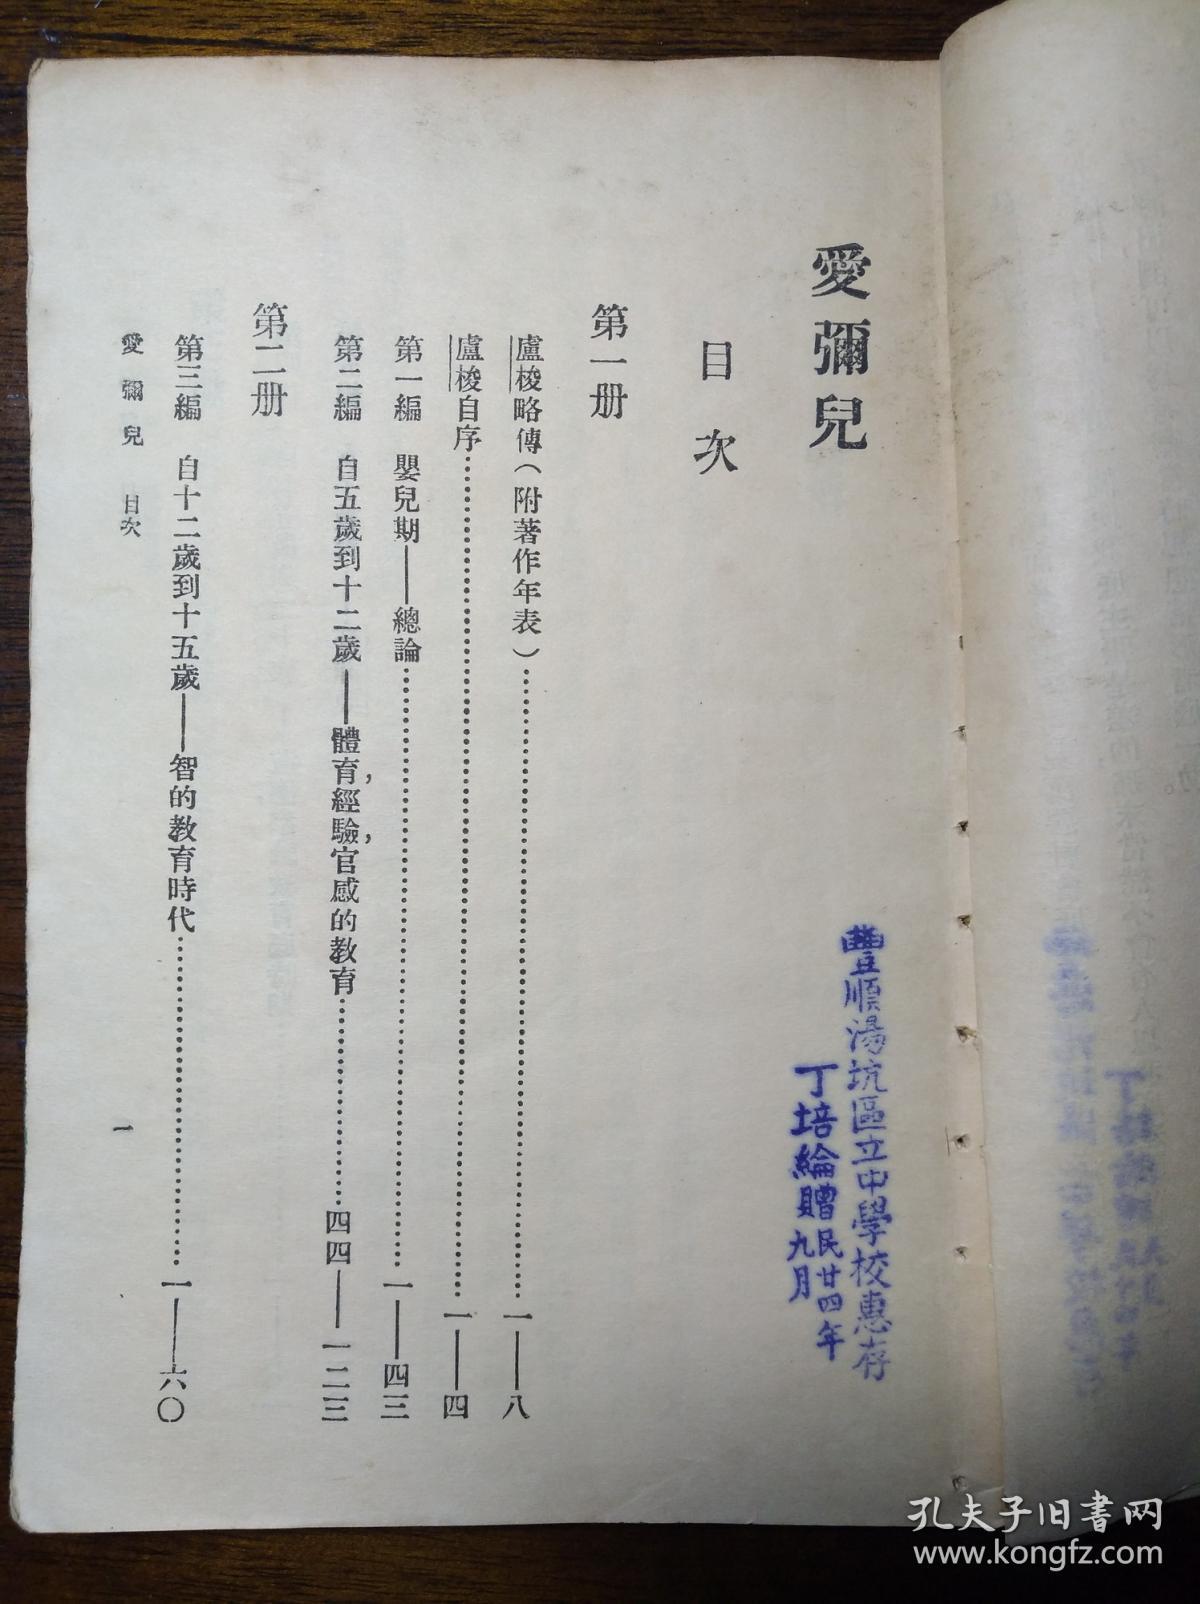 愛彌兒
目次
第一册
盧梭略傳(附著作年表)……一——八
盧梭自序……一——四
第一編 嬰兒期——總論……一——四三
第二編 自五歲到十二歲——體育,經驗,官感的教育……四四——一二三
第二册
第三編 自十二歲到十五歲——智的教育時代……一——六〇
愛彌兒 目次
一
豐順湯坑區立中學校惠存
丁培綸贈民廿四年九月
孔夫子旧书网
www.kongfz.com